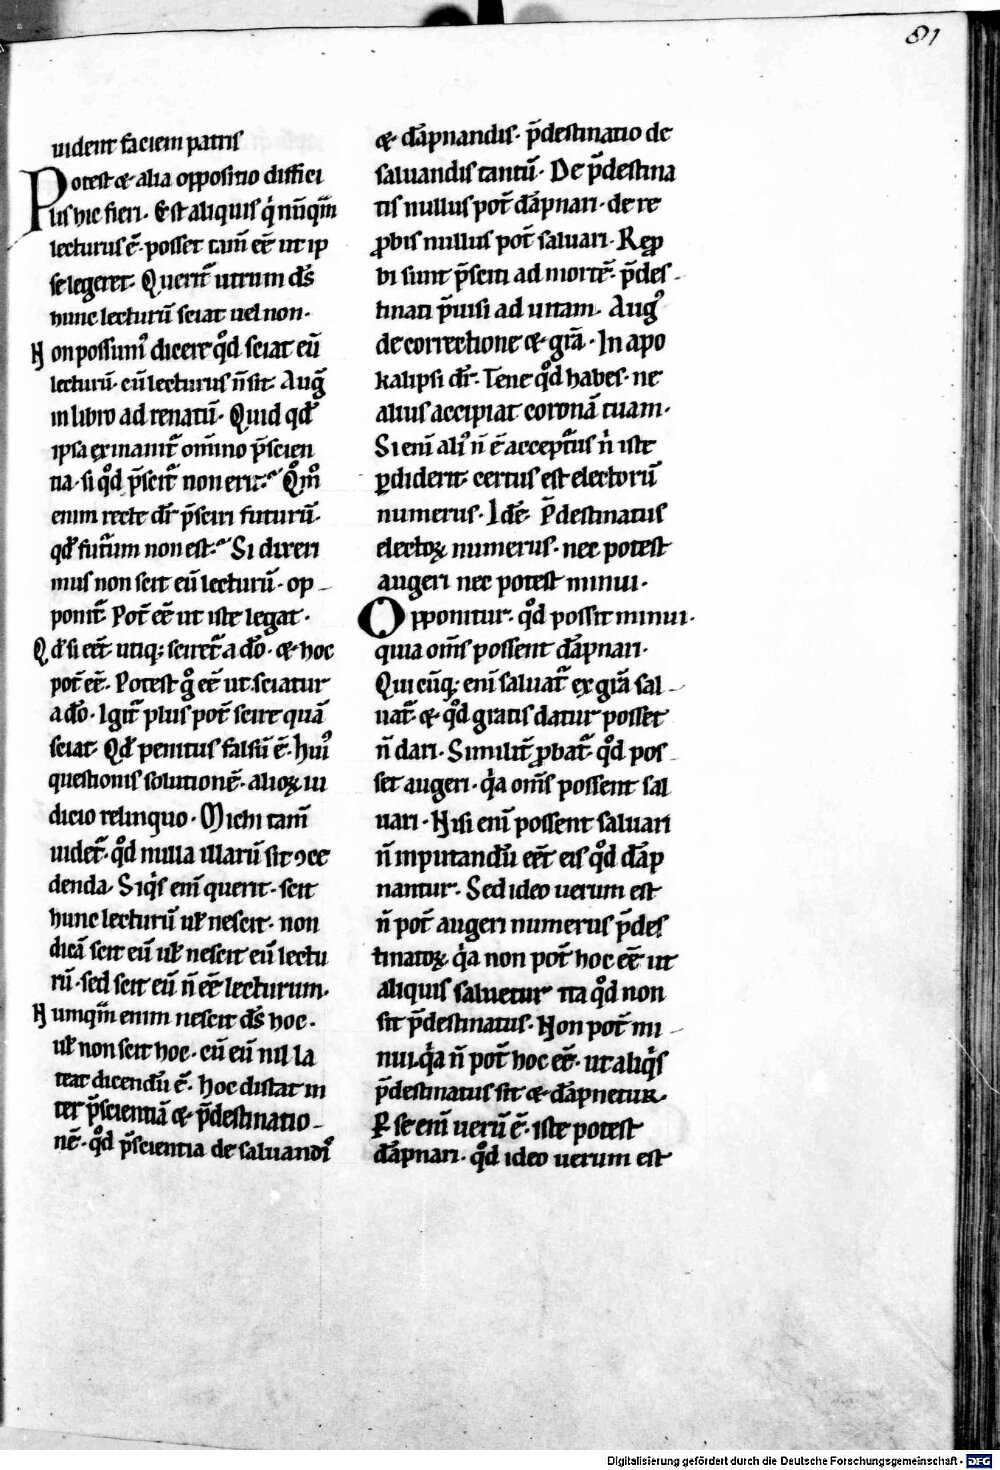 81
uident faciem patris
Potest & alia oppositio diffici
lis hic fieri. Est aliquis q̇ nūq̄m
lecturus ē. posset tam̄ eē ut ip
se legeret. Querit᷑ utrum d̄s
hunc lecturū sciat uel non.
Non possumꝰ dicere qͦd sciat eū
lecturū. cū lecturus n̄ sit. Aug᷑
in libro ad renatū. Quid qd᷑
ipsa exinanit᷑ om̄ino p̄scien
tia. si qͦd p̄scit᷑ non erit. Qͦmͦ
enim recte dr̄ p̄sciri futurū.
qd᷑ futurum non est. Si dixeri
mus non scit eū lecturū. op
ponit᷑. Pot̄ eē ut iste legat.
Qd᷑ si eēt. utiq; sciret᷑ a dō. & hoc
pot̄ eē. Potest gͦ eē ut sciatur
a dō. Igit᷑ plus pot̄ scire quā
sciat. Qd᷑ penitus falsū ē. huiꝰ
questionis solutionē. alioꝝ iu
dicio relinquo. Michi tam̄
uidet᷑. qͦd nulla illarū sit ꝯce
denda. Siqͥs eni᷑ querit. scit
hunc lecturū ul᷑ nescit. non
dicā scit eū ul᷑ nescit eū lectu
rū. sed scit eū n̄ eē lecturum.
Numq̄m enim nescit d̄s hoc.
ul᷑ non scit hoc. cū eū nil la
teat dicendū ē. hoc distat in
ter p̄scientiā & p̄destinatio
nē. qͦd p̄scientia de saluandiꝰ
& dāpnandis. p̄destinatio de
saluandis tantū. De p̄destina
tis nullus pot̄ dāpnari. de re
ꝓbis nullus pot̄ saluari. Reꝓ
bi sunt p̄sciti ad mortē. p̄des
tinati p̄uisi ad uitam. Augꝰ
de correctione & gr̄a. In apo
kalipsi dr̄. Tene qͦd habes. ne
alius accipiat coronā tuam.
Si eni᷑ aliꝰ n̄ ē accepturus n̄ iste
ꝑdiderit. certus est electorū
numerus. Idē. P̄destinatus
electoꝝ numerus. nec potest
augeri nec potest minui.
Opponitur. qͦd possit minui.
quia om̄s possent dāpnari.
Qui cūq; eni᷑ saluat᷑ ex gr̄a sal
uat᷑. & qͦd gratis datur posset
n̄ dari. Similit᷑ ꝓbat᷑ qͦd pos
set augeri. qͥa om̄s possent sal
uari. Nisi eni᷑ possent saluari
n̄ inputandū eēt eis qͦd dāp
nantur. Sed ideo uerum est
n̄ pot̄ augeri numerus p̄des
tinatoꝝ. qͥa non pot̄ hoc eē ut
aliquis saluetur ita qͦd non
sit p̄destinatus. Non pot̄ mi
nui. qͥa n̄ pot̄ hoc eē. ut aliqͥs
p̄destinatus sit & dāpnetur.
Ꝑ se eni᷑ uerū ē. iste potest
dāpnari. qͦd ideo uerum est
Digitalisierung gefördert durch die Deutsche Forschungsgemeinschaft - DFG